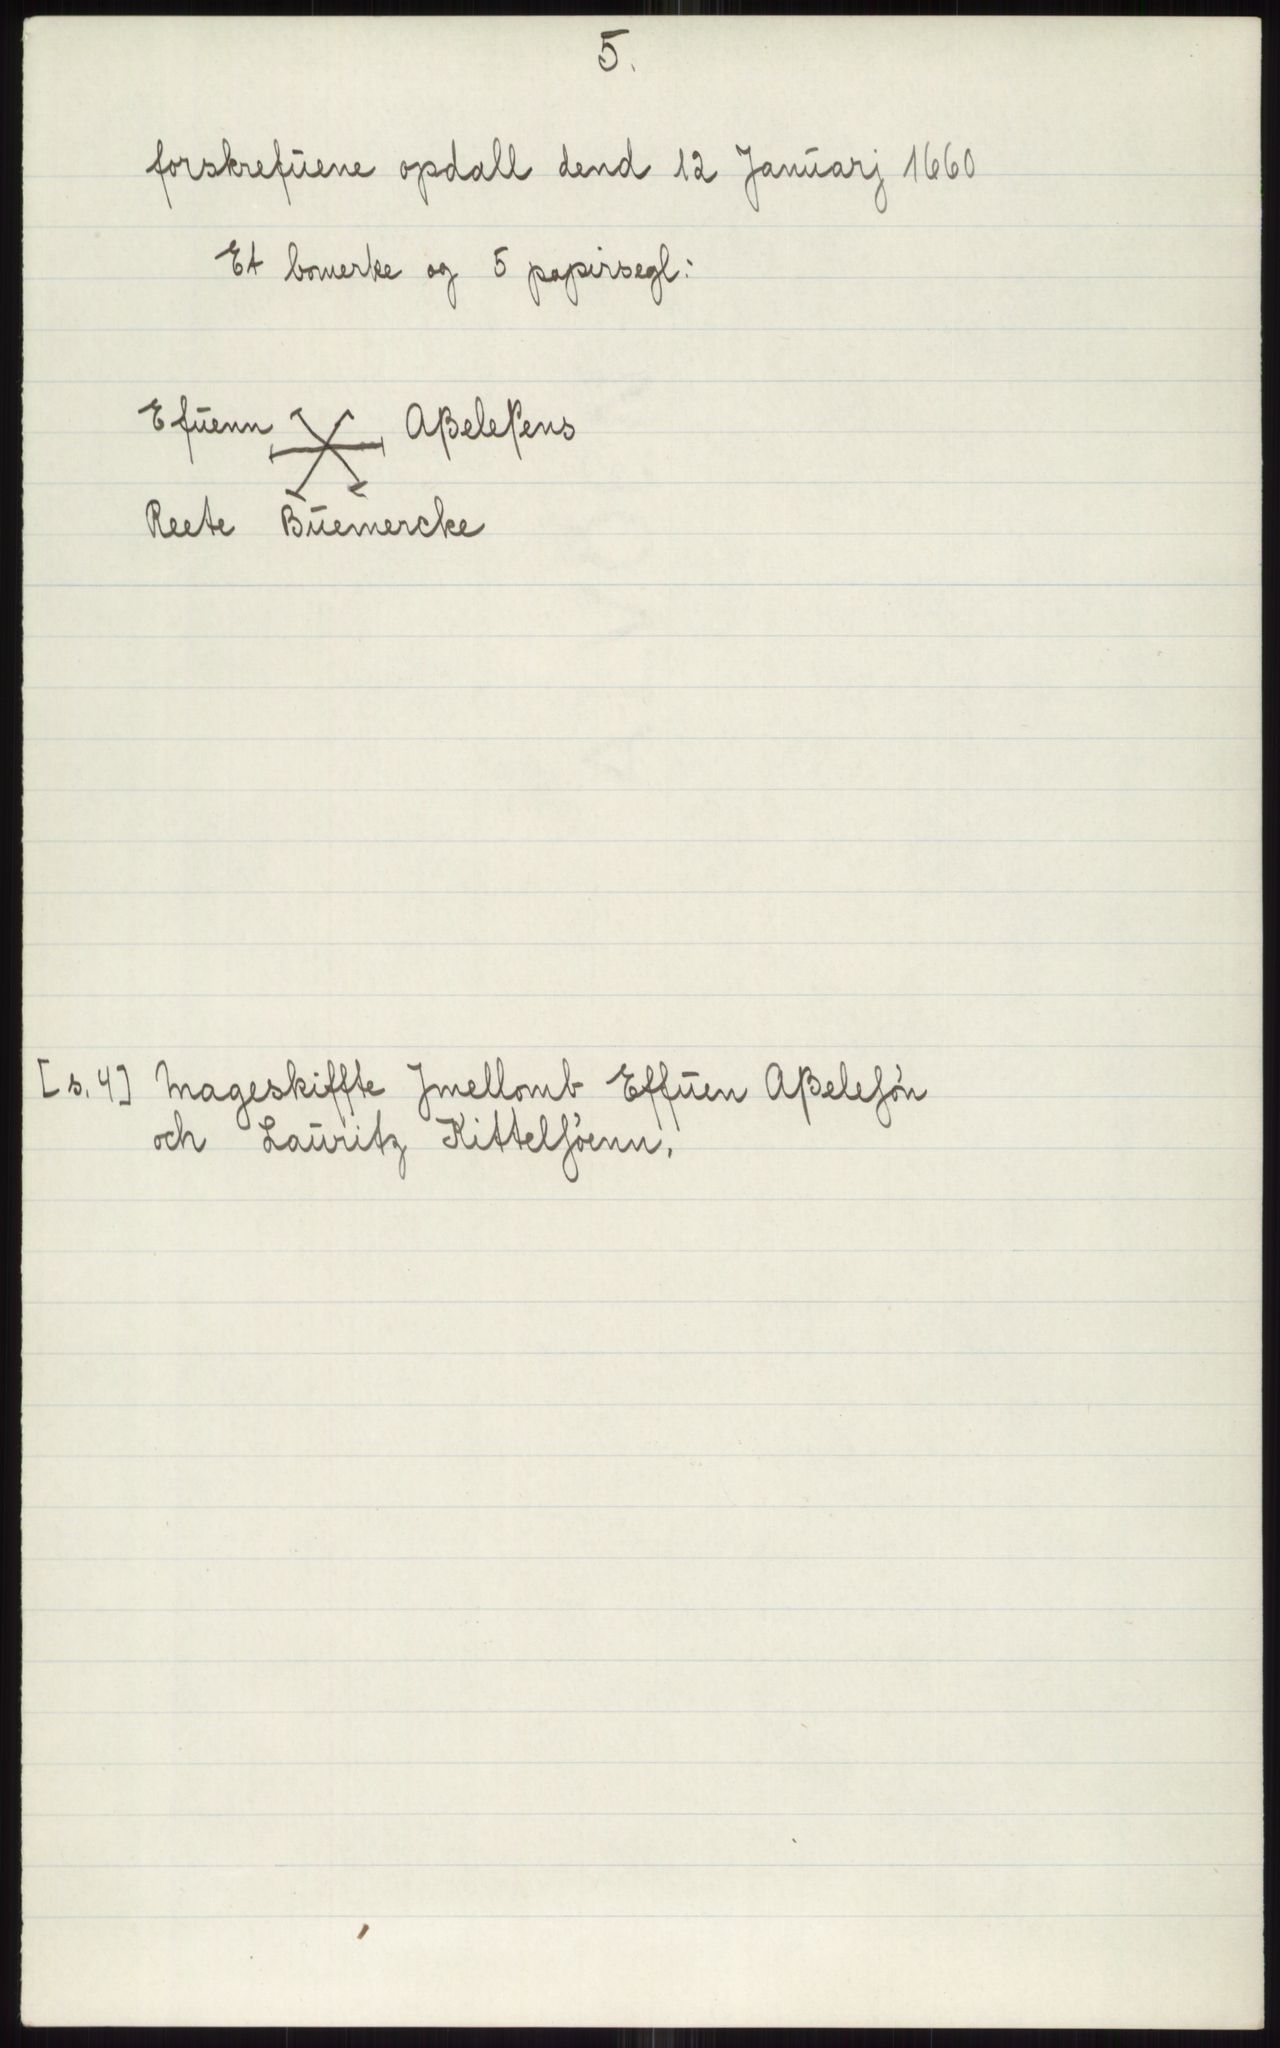 5.
forskrefūene opdall dend 12 Janūarj 1660
Et bomerke og 5 papirsegl:
Efūenn Aßeleßens
Reete Būemercke
[s. 4] Mageskiffte Jmellomb Effūen Aßelesøn
och Laūritz Kittelsøenn.